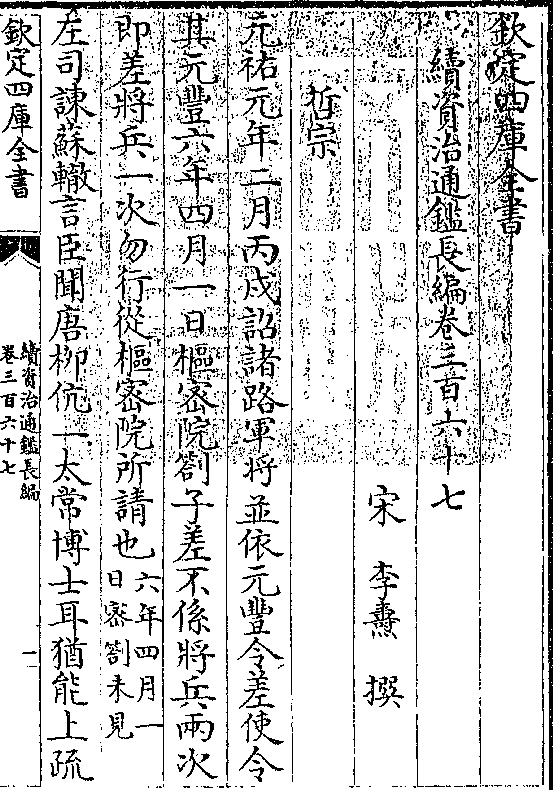 欽定四庫全書
續資治通鑑長編卷三百六十七
宋 李燾 撰
哲宗
元祐元年二月丙戌詔諸路軍將並依元豐令差使令
其元豐六年四月一日樞密院劄子差不係將兵兩次
即差將兵一次勿行從樞密院所請也六年四月一
日密劄未見
左司諫蘇轍言臣聞唐柳伉一太常博士耳猶能上疏
欽定四庫全書
續資治通鑑長編
卷三百六十七
一